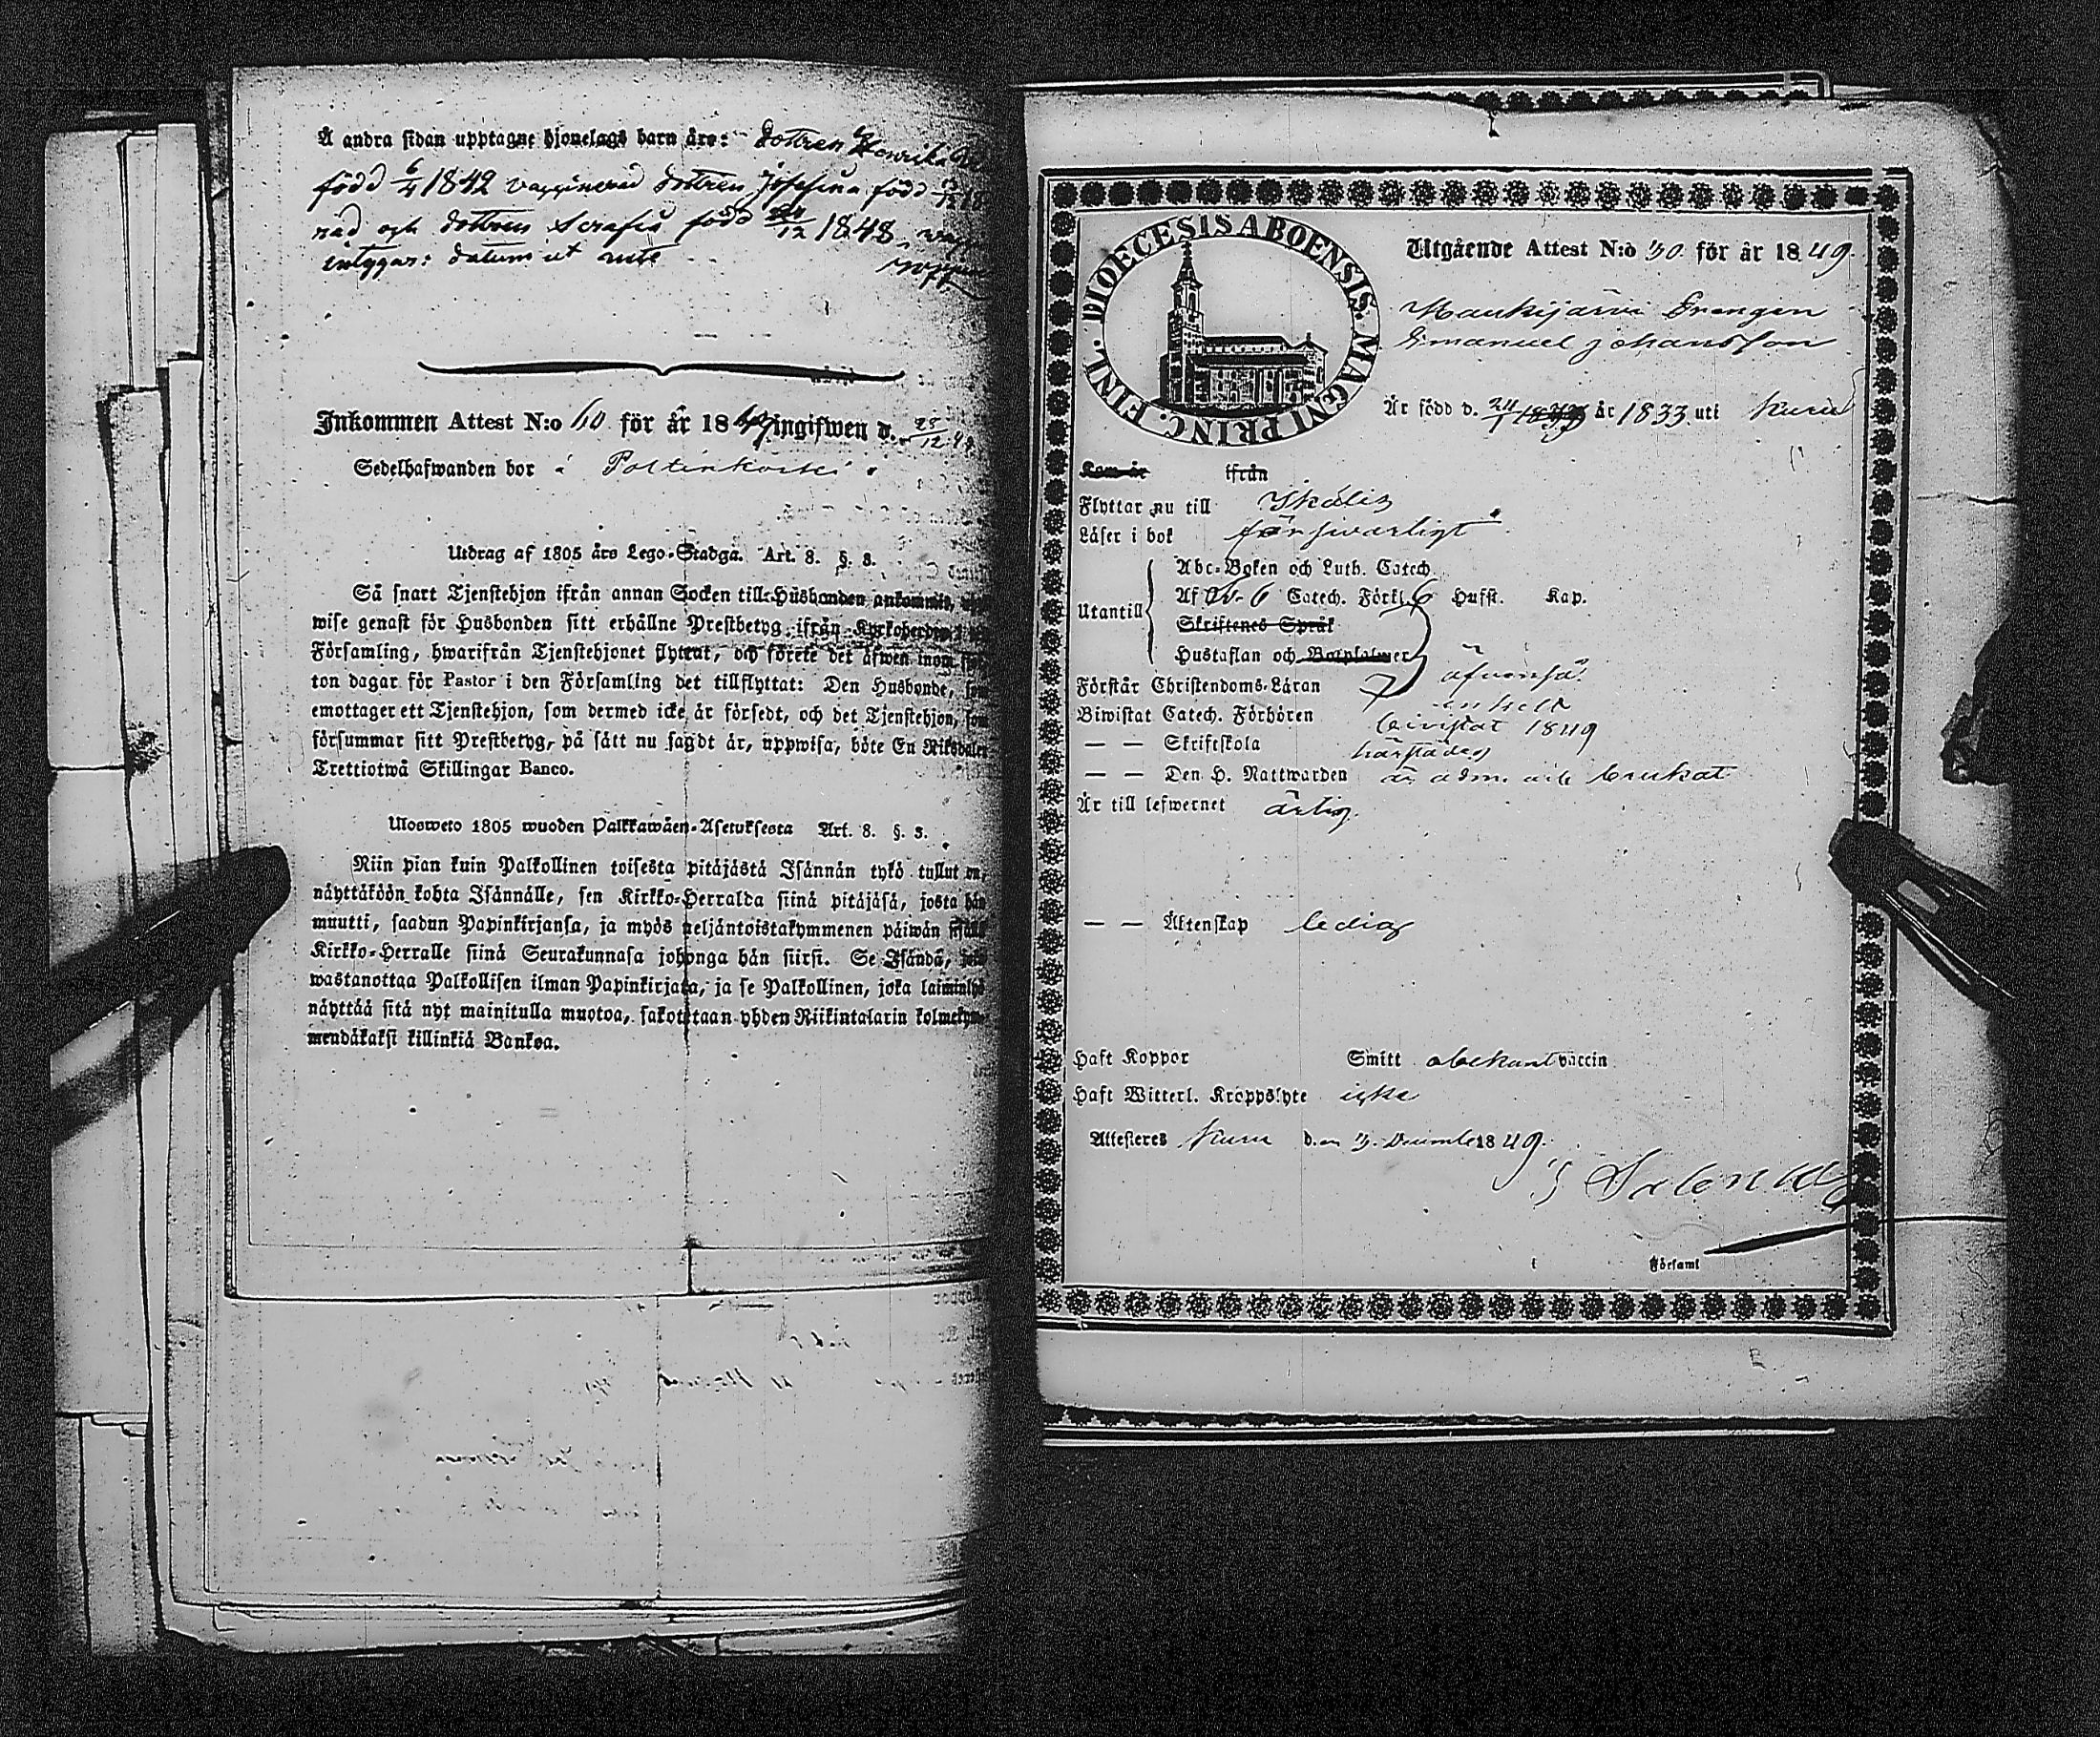 Å andra sidan upptagne hjonelags barn äro: dottren Henrika
född 6/4 1842 vaggинerad dottren Josefina född
rad och dottren Serafia född 24/12 1848,
intygar: datum ut ante
Inkommen Attest N:o 60 för år 1849 ingifwen d. 23/12 49
Sedelhafwanden bor i Poltinkoski.
Utdrag af 1805 års Lego-Stadga. Art. 8. §. 8.
Så snart Tjenstehjon ifrån annan Socken till Husbonden ankommit,
wise genast för Husbonden sitt erhållne Prestbetyg, ifrån Kyrkoherden i
Församling, hwarifrån Tjenstehjonet flyttat, och förete det äfwen inom
ton dagar för Pastor i den Församling det tillflyttat: Den Husbonde, som
emottager ett Tjenstehjon, som dermed icke är försedt, och det Tjenstehjon, som
försummar sitt Prestbetyg, på sätt nu sagdt är, uppwisa, böte En Riksdaler
Trettiotwå Skillingar Banco.
Ulosweto 1805 wuoden Palkkawäen-Asetuksesta Art. 8. §. 8.
Niin pian kuin Palkollinen toisesta pitäjästä Isännän tykö tullut on,
näyttäköön kohta Isännälle, sen Kirkko-Herralda siinä pitäjäsä, josta hän
muutti, saadun Papinkirjansa, ja myös neljäntoistakymmenen päiwän sisällä
Kirkko-Herralle siinä Seurakunnasa johonga hän siirsi. Se Isändä, joka
wastanottaa Palkollisen ilman Papinkirjata, ja se Palkollinen, joka laiminlyö
näyttää sitä nyt mainitulla muotoa, sakotetaan yhden Riikintalarin kolmekym-
mendäkaksi killinkiä Bankoa.
DIOECESIS ABOENSIS. MAGNI PRINC. FINL.
Utgående Attest N:o 30 för år 1849.
Maukijärvi Drengen
Emanuel Johansson
Är född d. 24/1 år 1833 uti Kuru
Kom år ifrån
Flyttar nu till Ikalis
Läser i bok försvarligt
Utantill
Abc-Boken och Luth. Catech.
Af Catech. Förkl. 6 Hufst. Kap.
Skriftenes Språk
Hustaflan och Botpsalmer
Förstår Christendoms-Läran äfvenså
enkelt
Biwistat Catech. Förhören bivistat 1849
— — Skriftskola härstädes
— — Den H. Nattwarden är adm. och brukat
Är till lefwernet ärlig.
— — Äktenskap ledig
Haft Koppor Smitt obekant vaccin
Haft Witterl. Kroppslyte icke
Attesteres Kuru den 13 December 1849.
Församl